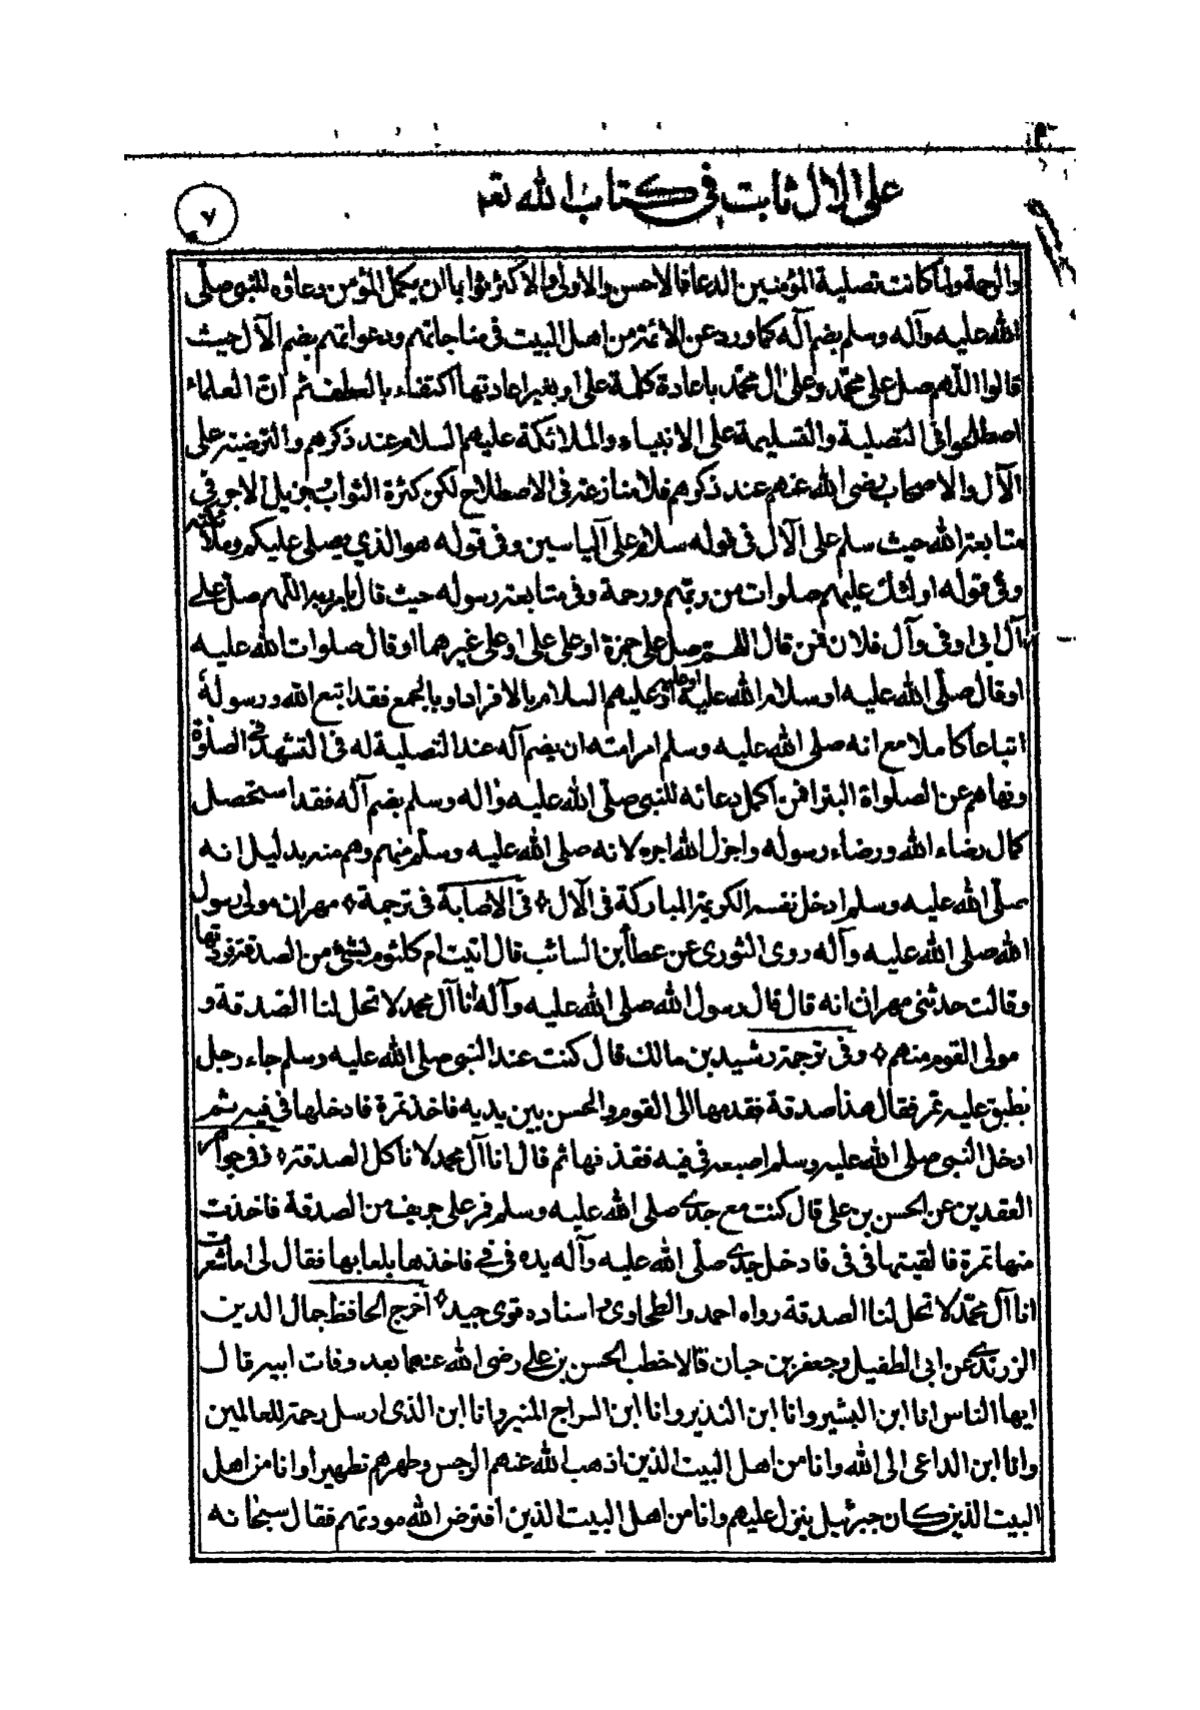 على الآل ثابت في كتاب الله تعم
٧
والرحمة ولما كانت تصلية المؤمنين الدعا فالاحسن والاولى والاكثر ثوابا ان يكمل المؤمن دعاؤه للنبي صلّى
الله عليه وآله وسلم بضم آله كما ورد عن الائمة من اهل البيت في مناجاتهم ودعواتهم بضم الآل حيث
قالوا اللّهم صل على محمّد وعلى ال محمّد باعادة كلمة على او بغير اعادتها اكتفاء بالعطف ثم انّ العلماء
اصطلحوا في التصلية والتسليمة على الانبياء والملائكة عليهم السلام عند ذكرهم والترضية على
الآل والاصحاب رضى الله عنهم عند ذكرهم فلا منازعة في الاصطلاح لكن كثرة الثواب وجزيل الاجور في
متابعة الله حيث سلم على الآل في قوله سلام على آل ياسين وفى قوله هو الذي يصلى عليكم وملائكته
وفى قوله اولئك عليهم صلوات من ربهم ورحمة وفى متابعة رسوله حيث قال اللّهم صل على
آل ابى اوفى وآل فلان فمن قال اللهم صل على حمزة او على على او على غيرهما او قال صلوات الله عليه
او قال صلّى الله عليه او سلام الله عليه او عليهم السلام بالافراد او بالجمع فقد اتبع الله ورسوله
اتباعا كاملا مع انه صلى الله عليه وسلم امر امته ان يضم آله عند التصلية له في التشهد في الصلوة
ونهاهم عن الصلواة البترا فمن اكمل دعائه للنبي صلّى الله عليه واله وسلم بضم آله فقد استحصل
كمال رضاء الله ورضاء رسوله واجزل الله اجره لانه صلى الله عليه وسلم منهم وهم منه بدليل انه
صلّى الله عليه وسلم ادخل نفسه الكريمة المباركة في الآل في الاصابة في ترجمة مهران مولى رسول
الله صلى الله عليه وآله روى الثورى عن عطأ بن السائب قال اتيت ام كلثوم بشئ من الصدقة فردتها
وقالت حدثنى مهران انه قال قال رسول الله صلى الله عليه وآله انا آل محمد لا تحل لنا الصدقة و
مولى القوم منهم وفى ترجمة رشيد بن مالك قال كنت عند النبي صلى الله عليه وسلم جاء رجل
بطبق عليه تمر فقال هذا صدقة فقدمها الى القوم والحسن بين يديه فاخذ تمرة فادخلها في فيه ثم
ادخل النبي صلى الله عليه وسلم اصبعه في فيه فقذفها ثم قال انا آل محمد لا ناكل الصدقة وفى جواهر
العقدين عن الحسن بن على قال كنت مع جدى صلى الله عليه وسلم فمر على جرين من الصدقة فاخذت
منها تمرة فالقيتها في فى فادخل جدى صلّى الله عليه وآله يده في فى فاخذها بلعابها فقال لى اما شعرت
انا آل محمّد لا تحل لنا الصدقة رواه احمد والطحاوى واسناده قوى جيد أخرج الحافظ جمال الدين
الزرندى عن ابى الطفيل وجعفر بن حبان قالا خطب الحسن بن على رضى الله عنهما بعد وفات ابيه قال
ايها الناس انا ابن البشير وانا ابن النذير وانا ابن السراج المنير وانا ابن الذى ارسل رحمة للعالمين
وانا ابن الداعى الى الله وانا من اهل البيت الذين اذهب الله عنهم الرجس وطهرهم تطهيرا وانا من اهل
البيت الذين كان جبرئيل ينزل عليهم وانا من اهل البيت الذين افترض الله مودتهم فقال سبحانه